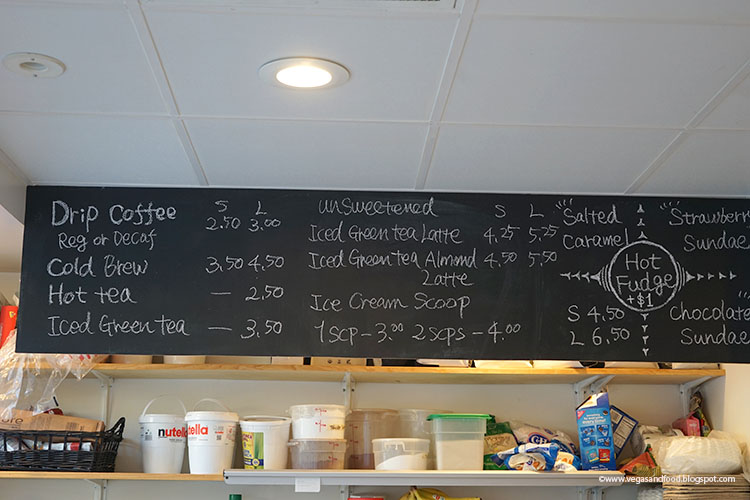 S L
Drip Coffee 2.50 3.00
Reg or Decaf
Cold Brew 3.50 4.50
Hot tea — 2.50
Iced Green tea — 3.50
unSweetened S L
Iced Green tea Latte 4.25 5.25
Iced Green tea Almond 4.50 5.50
Latte
Ice Cream Scoop
1 scp - 3.00 2 scps - 4.00
"Salted
Caramel
Hot
Fudge
+$1
S 4.50
L 6.50
Strawberr
Sundae
Chocolate
Sundae
nutella
nutella
©www.vegasandfood.blogspot.com